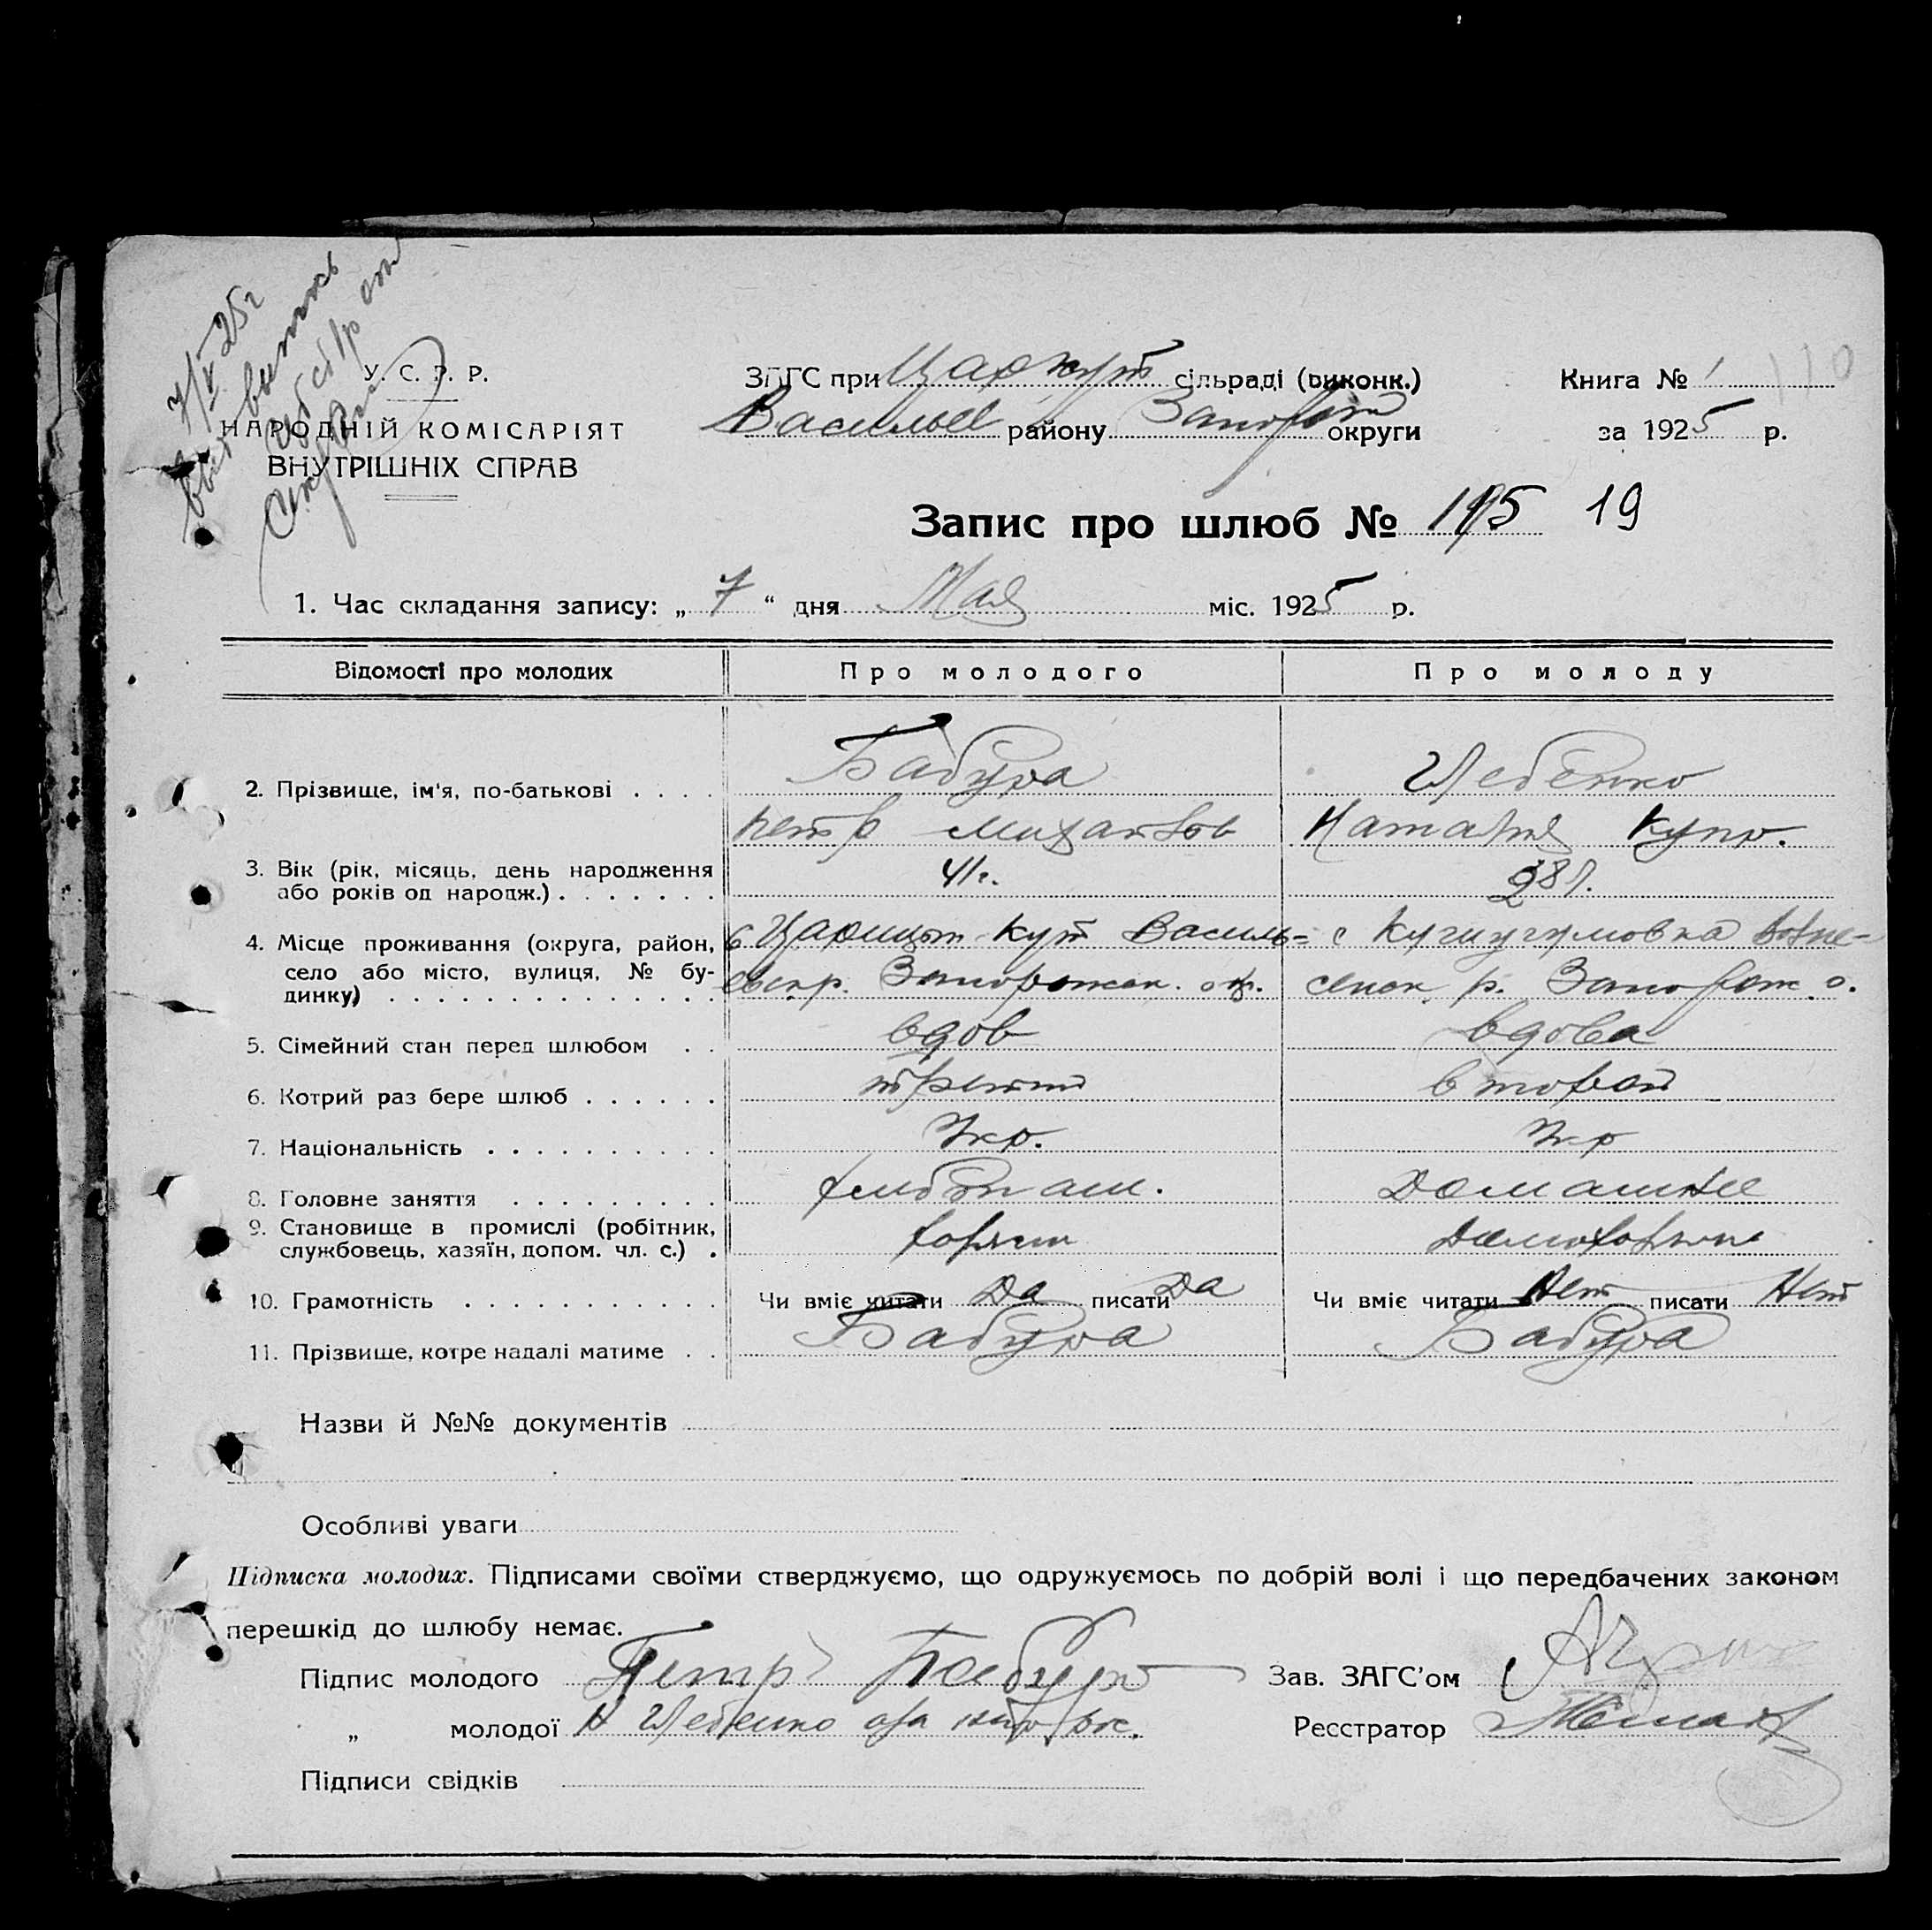 7/V 25 г
У. С. Р. Р.
НАРОДНІЙ КОМІСАРІЯТ
ВНУТРІШНІХ СПРАВ
ЗАГС при Царкут сільраді (виконк.)
Васильев району Запорож округи
Книга № 1 110
за 1925 р.
Запис про шлюб № 195 19
1. Час складання запису: „ 7 “ дня Мая міс. 1925 р.
Відомості про молодих Про молодого Про молоду
2. Прізвище, ім'я, по-батькові . . . . Бабура Шебенко
Петр Михайлов Наталия Купр.
3. Вік (рік, місяць, день народження
або років од народж.) . . . . . . . 41 г. 28 л.
4. Місце проживання (округа, район, с Царицын Кут Василь= с Кучугумовка Возне-
село або місто, вулиця, № бу- евск р. Запорожск. окр. сенск. р. Запорож о.
динку) . . . . . . . . . . . . . .
5. Сімейний стан перед шлюбом . . вдов вдова
6. Котрий раз бере шлюб . . . . . . третий второй
7. Національність . . . . . . . . . . Укр. Укр
8. Головне заняття . . . . . . . . . хлебопаш. Домашнее
9. Становище в промислі (робітник,
службовець, хазяїн, допом. чл. с.) . хозяин Домохозяин
10. Грамотність . . . . . . . . . . . Чи вміє читати Да писати Да Чи вміє читати Нет писати Нет
11. Прізвище, котре надалі матиме . . Бабура Бабура
Назви й №№ документів
Особливі уваги
Підписка молодих. Підписами своїми стверджуємо, що одружуємось по добрій волі і що передбачених законом
перешкід до шлюбу немає.
Підпис молодого Петр Бабура Зав. ЗАГС'ом
„ молодої Н Шебенко Реєстратор
Підписи свідків